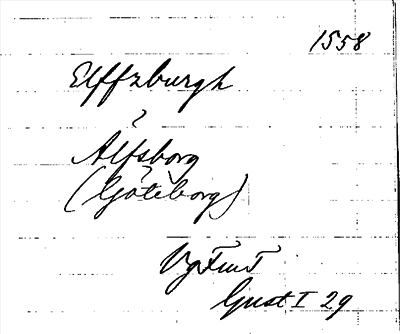 1558
Elffzburgh
?
Älfsborg
?
(Göteborg)
Vg Fur
Gust I 29